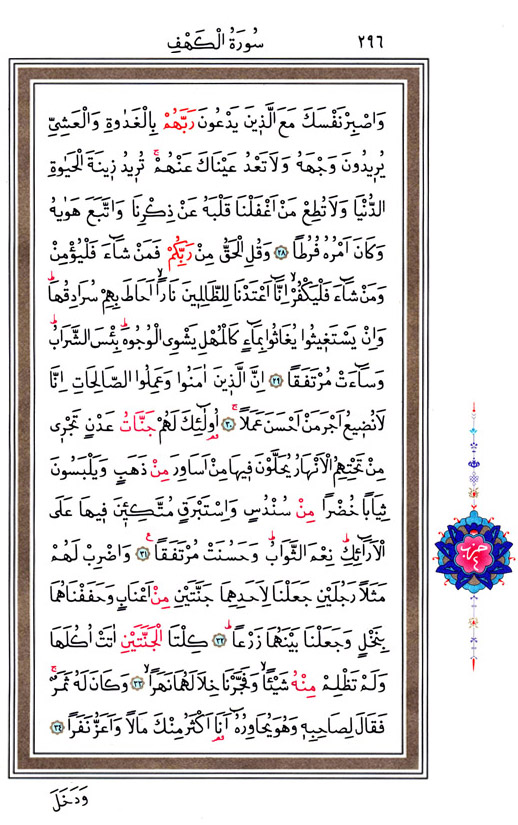 ٢٩٦ سُورَةُ الْكَهْفِ
وَاصْبِرْ نَفْسَكَ مَعَ الَّذ۪ينَ يَدْعُونَ رَبَّهُمْ بِالْغَدٰوةِ وَالْعَشِيِّ
يُر۪يدُونَ وَجْهَهُ وَلَا تَعْدُ عَيْنَاكَ عَنْهُمْۚ تُر۪يدُ ز۪ينَةَ الْحَيٰوةِ
الدُّنْيَا وَلَا تُطِعْ مَنْ اَغْفَلْنَا قَلْبَهُ عَنْ ذِكْرِنَا وَاتَّبَعَ هَوٰيهُ
وَكَانَ اَمْرُهُ فُرُطًا ﴿٢٨﴾ وَقُلِ الْحَقُّ مِنْ رَبِّكُمْ فَمَنْ شَٓاءَ فَلْيُؤْمِنْ
وَمَنْ شَٓاءَ فَلْيَكْفُرْۙ اِنَّٓا اَعْتَدْنَا لِلظَّالِم۪ينَ نَارًاۙ اَحَاطَ بِهِمْ سُرَادِقُهَاۜ
وَاِنْ يَسْتَغ۪يثُوا يُغَاثُوا بِمَٓاءٍ كَالْمُهْلِ يَشْوِي الْوُجُوهَۜ بِئْسَ الشَّرَابُۜ
وَسَٓاءَتْ مُرْتَفَقًا ﴿٢٩﴾ اِنَّ الَّذ۪ينَ اٰمَنُوا وَعَمِلُوا الصَّالِحَاتِ اِنَّا
لَا نُض۪يعُ اَجْرَ مَنْ اَحْسَنَ عَمَلًاۚ ﴿٣٠﴾ اُو۬لٰٓئِكَ لَهُمْ جَنَّاتُ عَدْنٍ تَجْر۪ي
مِنْ تَحْتِهِمُ الْاَنْهَارُ يُحَلَّوْنَ ف۪يهَا مِنْ اَسَاوِرَ مِنْ ذَهَبٍ وَيَلْبَسُونَ
ثِيَابًا خُضْرًا مِنْ سُنْدُسٍ وَاِسْتَبْرَقٍ مُتَّكِـ۪ٔينَ ف۪يهَا عَلَى
الْاَرَٓائِكِۜ نِعْمَ الثَّوَابُۜ وَحَسُنَتْ مُرْتَفَقًا۟ ﴿٣١﴾ وَاضْرِبْ لَهُمْ
مَثَلًا رَجُلَيْنِ جَعَلْنَا لِاَحَدِهِمَا جَنَّتَيْنِ مِنْ اَعْنَابٍ وَحَفَفْنَاهُمَا
بِنَخْلٍ وَجَعَلْنَا بَيْنَهُمَا زَرْعًاۜ ﴿٣٢﴾ كِلْتَا الْجَنَّتَيْنِ اٰتَتْ اُكُلَهَا
وَلَمْ تَظْلِمْ مِنْهُ شَيْـًٔاۙ وَفَجَّرْنَا خِلَالَهُمَا نَهَرًاۙ ﴿٣٣﴾ وَكَانَ لَهُ ثَمَرٌۚ
فَقَالَ لِصَاحِبِه۪ وَهُوَ يُحَاوِرُهُٓ اَنَا۬ اَكْثَرُ مِنْكَ مَالًا وَاَعَزُّ نَفَرًا ﴿٣٤﴾
وَدَخَلَ
حزب
٤